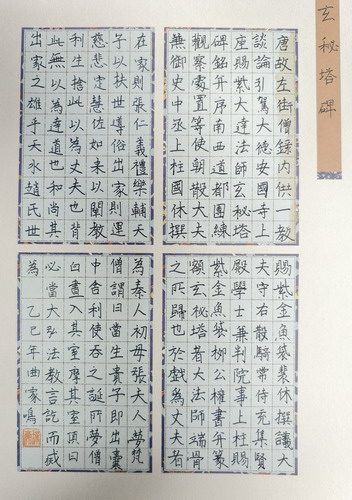 玄秘塔碑
唐故左街僧録内供一教
談論引駕大德安國寺上
座賜紫大達法師玄秘塔
碑銘并序南西道都團練
觀察處置等使朝散大夫
兼御史中丞上柱國休撰
賜紫金魚袋裴休撰議大
夫守右散騎常侍充集賢
殿學士兼判院事上柱賜
紫金魚袋柳公權書并篆
額玄秘塔者大法師端骨
之所歸也於戲為丈夫者
在家則張仁義禮樂輔天
子以扶世導俗出家則運
慈悲定慧佐如来以闡教
利生捨此以為丈夫也背
此無以為達道也和尚其
出家之雄乎天水趙氏世
為秦人初母張夫人夢梵
僧謂曰當生貴子即出囊
中舍利使吞之誕所夢僧
白晝入其室摩其室頂曰
必當大弘法教言訖而滅
為 乙巳年曲家鳴